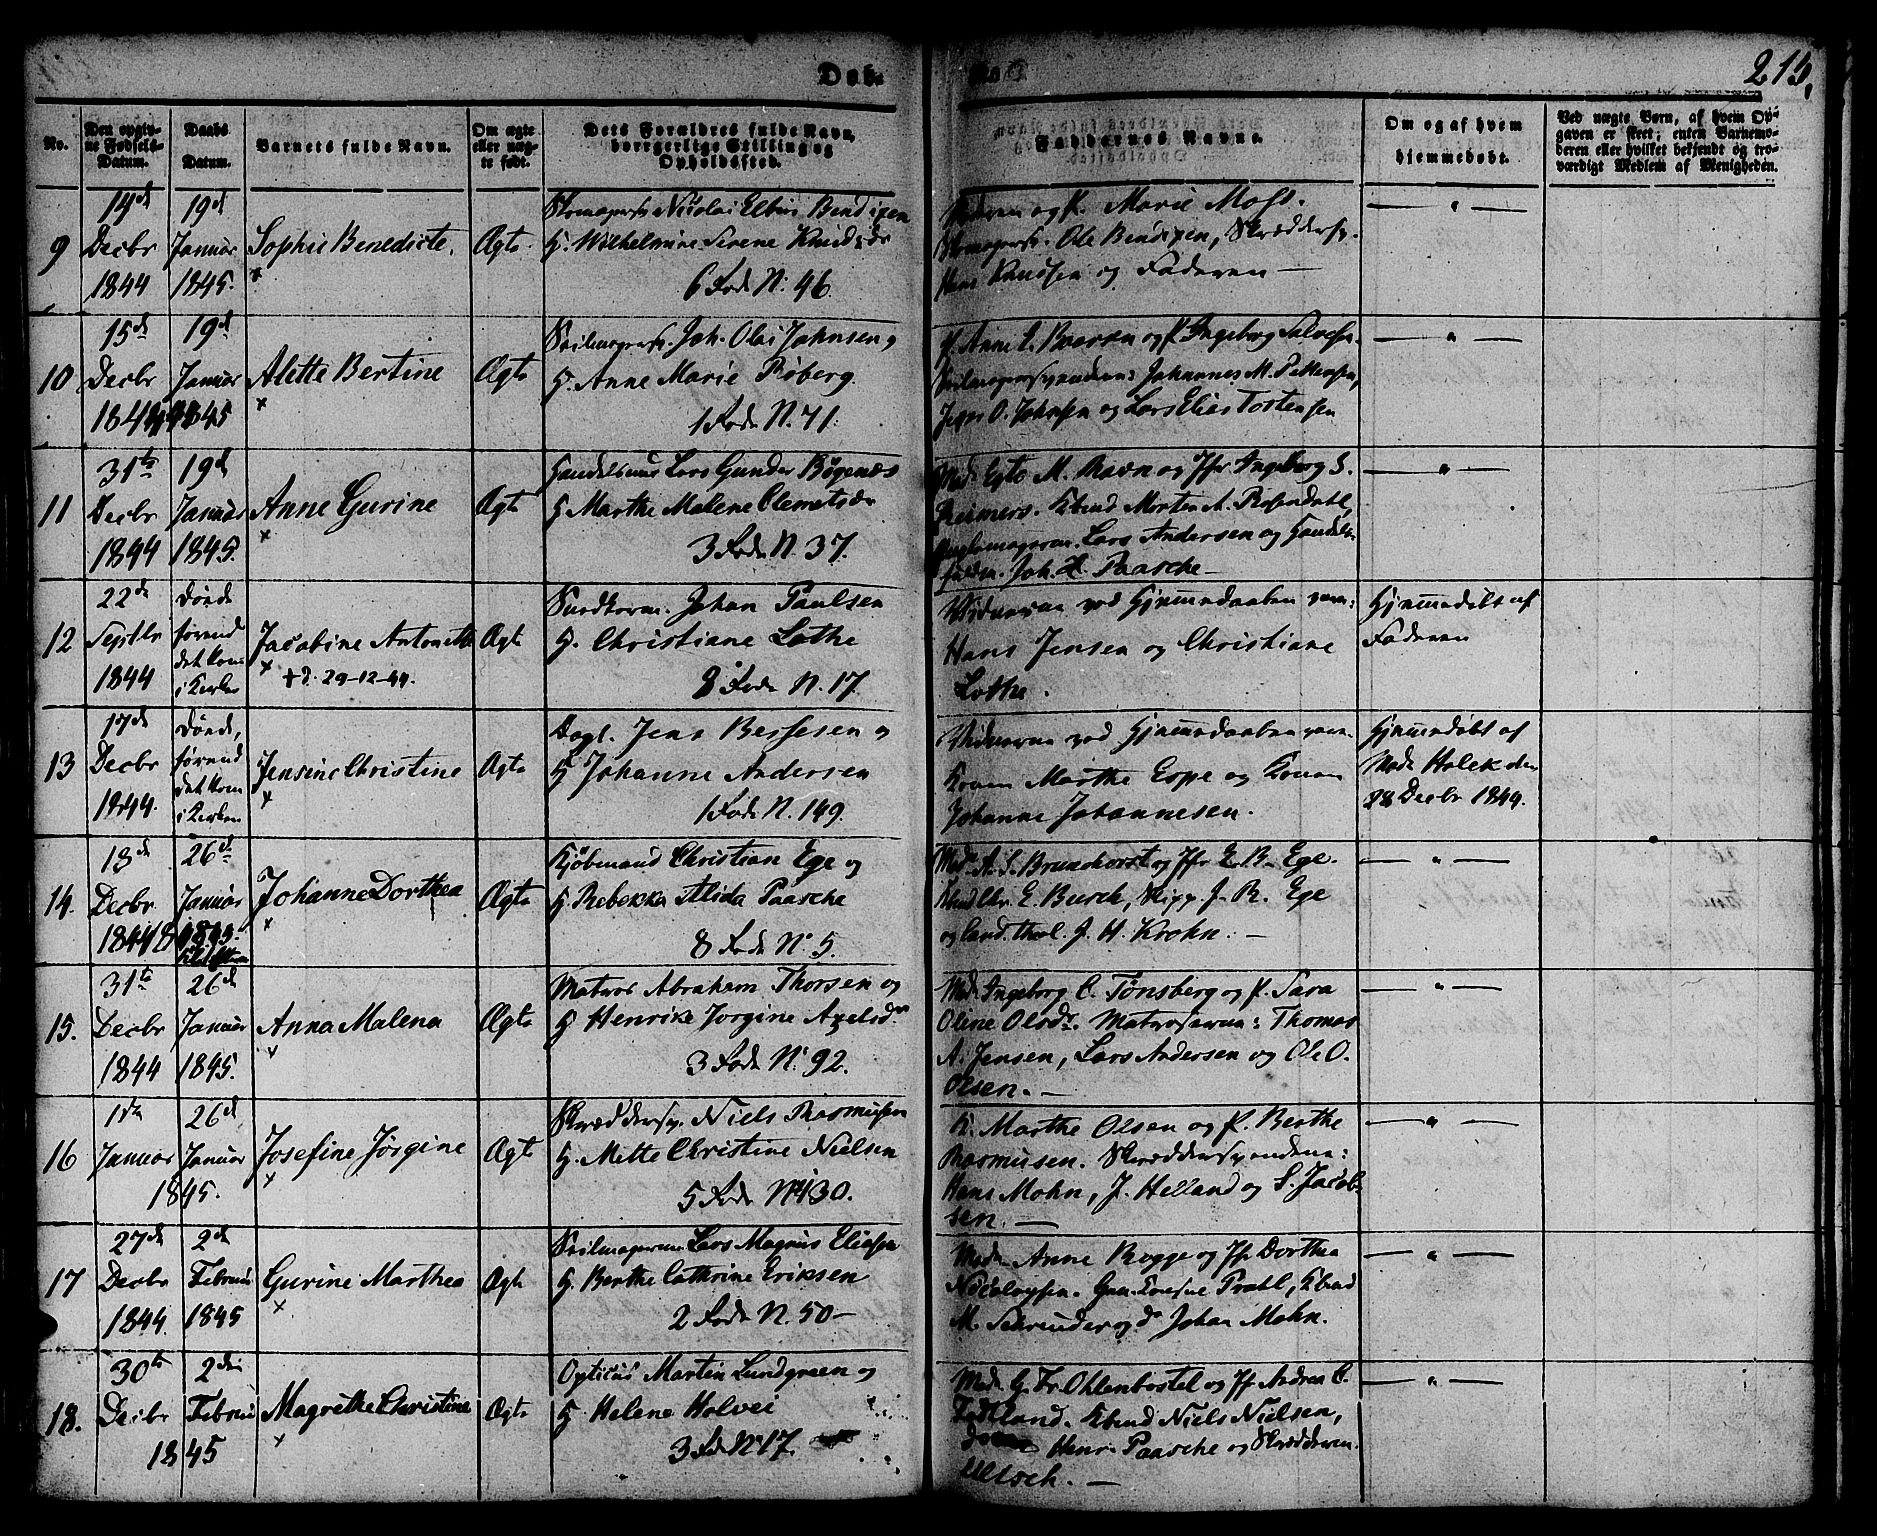 Døb.
215,
No.
Den opgivne Fødsels-Datum.
Daabs Datum.
Barnets fulde Navn.
Om ægte eller uægte født.
Dets Forældres fulde Navn, borgerlige Stilling og Opholdssted.
Faddernes Navne.
Om og af hvem hjemmedøbt.
Ved uægte Børn, af hvem Opgaven er skeet; enten Barnemoderen eller hvilket bekjendt og troværdigt Medlem af Menigheden.
9
14de Decbr 1844
19de Januar 1845.
Sophie Benedicte.
Ægte
Skomagersv. Nicolai Bendixen
H. Wilhelmine Serene Knudsdr
6 Fode N: 46.
og P. Marie Moss.
Skomagersv. Ole Bendixen, Skræddersv.
Hans Knudsen og Faderen —
— " —
10
15de Decbr 1844
19de Januar 1845
Alette Bertine
Ægte
Seilmagersv. Joh. Olai Johnsen,
H. Anne Marie Røberg.
1 Fode N. 71.
P. Anne L. Baarsen og P. Ingeborg Salvesen.
Seilmagersvendene: Johannes M. Pettersen,
Jens O. Johnsen og Lars Elias Tostensen
— " —
11
31te Decbr 1844
19de Januar 1845.
Anne Gurine
Ægte
Handelsmd Lars Gunder Bøgenæs
H. Marthe Malene Clemetsdr
3 Fode N. 37.
Mad. Egto M. Ravn og Jfr Ingeborg S.
Reimers. Kbmd Morten A. Rosendahl,
Lars Andersen og Handels-
Joh. H. Paasche —
— " —
12
22de Septbr 1844
Døde førend det kom i Kirken
Jacobine Antonette
+ d. 29-12-44.
Ægte
Johan Paulsen
H. Christiane Lothe
8 Fode N. 17.
Vidnerne ved Hjemmedaaben vare:
Hans Jensen og Christiane
Lothe.
Hjemmedøbt af
Faderen
13
17de Decbr 1844.
Døde, førend det kom i Kirken
Jensine Christine
Ægte
Dagl. Jens Bessesen og
H. Johanne Andersen
1 Fode N. 149.
Vidnerne ved Hjemmedaaben vare
Konen Marthe Espe og Konen
Johanne Johannesen.
Hjemmedøbt af
Mad. Holck den
28 Decbr 1844.
14.
18de Decbr 1844
26de Januar 1845.
Johanne Dorthea
Ægte
Kjøbmand Christian Ege og
H. Rebekka Alida Paasche
8 Fode No 5.
Mad. A. S. Brunchorst og Jfr E. B. Ege.
E. Busch, Skipp. J. R. Ege
og Cand. theol. J. H. Krohn. —
— " —
15.
31te Decbr 1844
26de Januar 1845.
Anna Malena
Ægte
Matros Abraham Thorsen og
H. Henrike Jorgine Axelsdr
3 Fode N: 92.
Mad. Ingeborg C. Tønsberg og P. Sara
Oline Olsdr. Matroserne: Thomas
A. Jensen, Lars Andersen og Ole O.
Olsen. —
— " —
16
1ste Januar 1845.
26de Januar
Josefine Jørgine
Ægte
Skræddersv. Niels Rasmussen
H. Mette Christine Nielsen
5 Fode No 130.
K. Marthe Olsen og P. Berthe
Rasmusen. Skræddersvendene:
Hans Mohn, J. Helland og S. Jacob-
sen. —
— " —
17
27de Decbr 1844.
2de Februar 1845
Gurine Marthea
Ægte
Seilmagersv. Lars Magnus Eliasen
H. Berthe Cathrine Eriksen
2 Fode N. 50 —
Mad. Anne Rogge og Jfr Dorthea
Nicolaysen. Prahl, Kbmd
M. Schrøder og do Johan Mohn.
— " —
18.
30te Decbr 1845
2den Februar
Magrethe Christine
Ægte
Opticus Martin Lundgreen og
H. Helene Holvei
3 Fode No 17.
Mad. G. Fr. Ohlenbostel og Jfr Andrea C.
Fedtland. Kbmd Niels Nielsen,
Henr. Paasche og Skrædderen
Ultsch. —
— " —